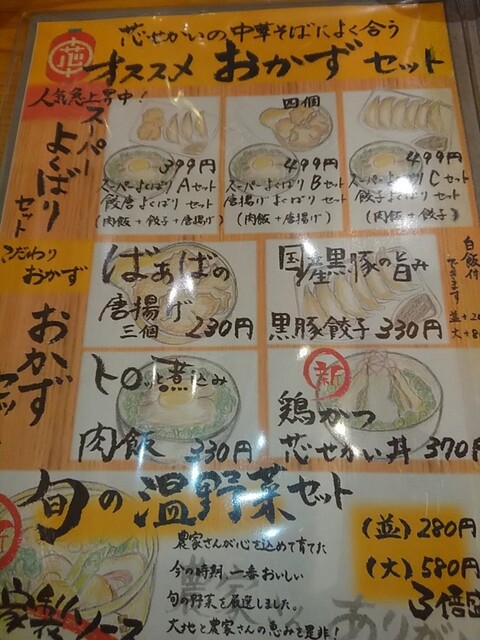 芯
芯せかいの中華そばによく合う
オススメ おかずセット
人気急上昇中!
スーパーよくばりセット
399円
スーパーよくばりAセット
餃唐よくばりセット
(肉飯+餃子+唐揚げ)
四個
499円
スーパーよくばりBセット
唐揚げよくばりセット
(肉飯+唐揚げ)
499円
スーパーよくばりCセット
餃子よくばりセット
(肉飯+餃子)
こだわり
おかず
おかず
ばぁばの
唐揚げ
三個 230円
国産黒豚の旨み
黒豚餃子 330円
白飯付
できます
並+2
大+8
トロッと煮込み
肉飯 330円
新
鶏かつ
芯せかい丼 370円
旬の温野菜セット
新
家製ソース
農家さんが心を込めて育てた
今の時期、一番おいしい
旬の野菜を厳選しました。
大地と農家さんの恵みを是非!
(並)280円
(大)580円
3倍